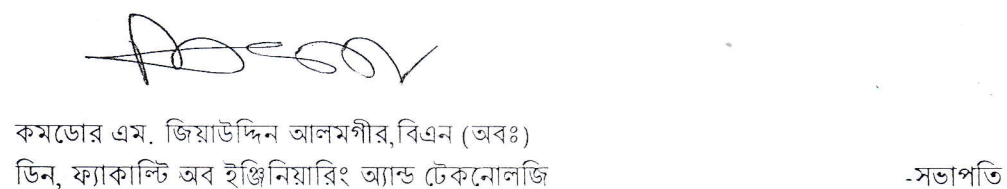 কমডোর এম. জিয়াউদ্দিন আলমগীর, বিএন (অবঃ)
ডিন, ফ্যাকাল্টি অব ইঞ্জিনিয়ারিং অ্যান্ড টেকনোলজি -সভাপতি